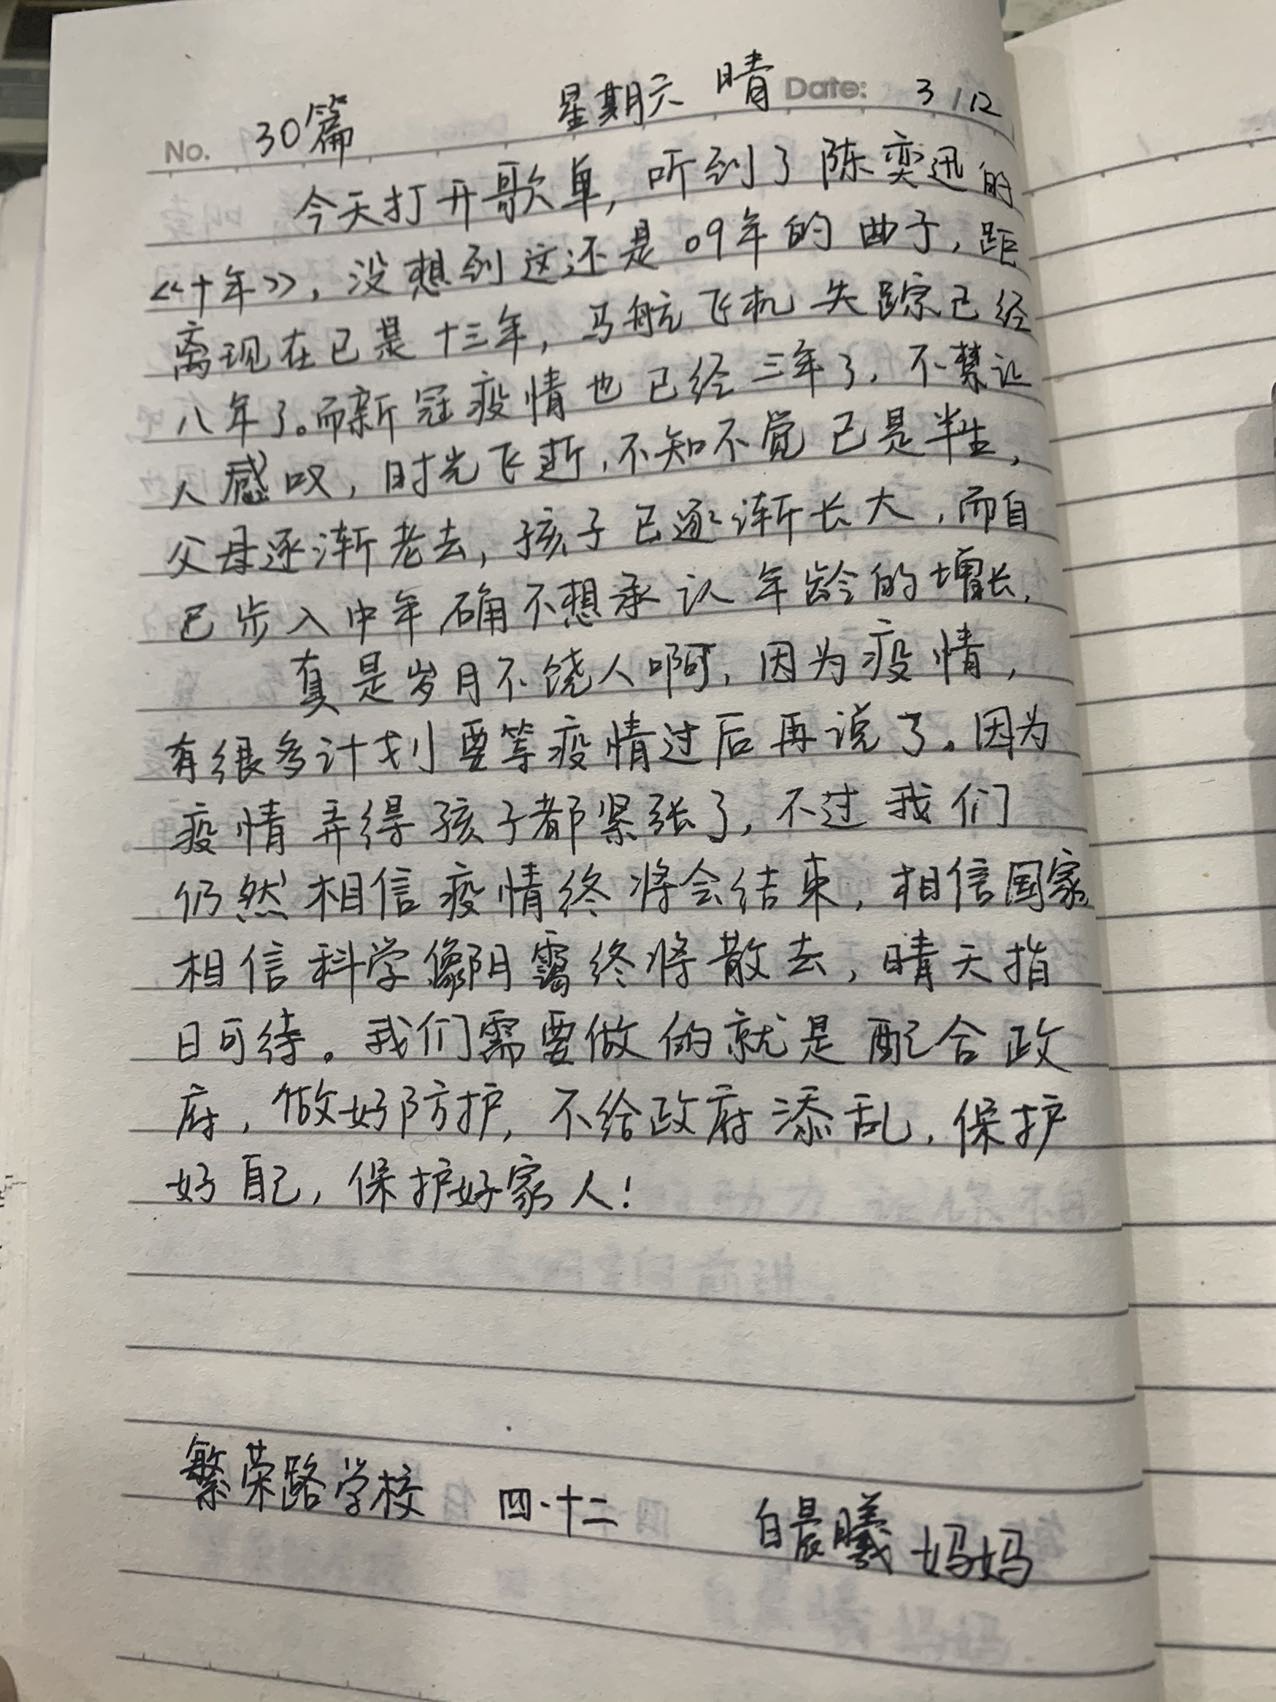 No. 30篇 星期六 晴 Date: 3/12
今天打开歌单,听到了陈奕迅的
《十年》,没想到这还是09年的曲子,距
离现在已是十三年,马航飞机失踪已经
八年了。而新冠疫情也已经三年了,不禁让
人感叹,时光飞逝,不知不觉已是半生,
父母逐渐老去,孩子已逐渐长大,而自
己步入中年确不想承认年龄的增长,
真是岁月不饶人啊,因为疫情,
有很多计划要等疫情过后再说了。因为
疫情弄得孩子都紧张了,不过我们
仍然相信疫情终将会结束,相信国家,
相信科学像阴霭终将散去,晴天指
日可待。我们需要做的就是配合政
府,做好防护,不给政府添乱,保护
好自己,保护好家人!
繁荣路学校 四·十二 白晨曦妈妈